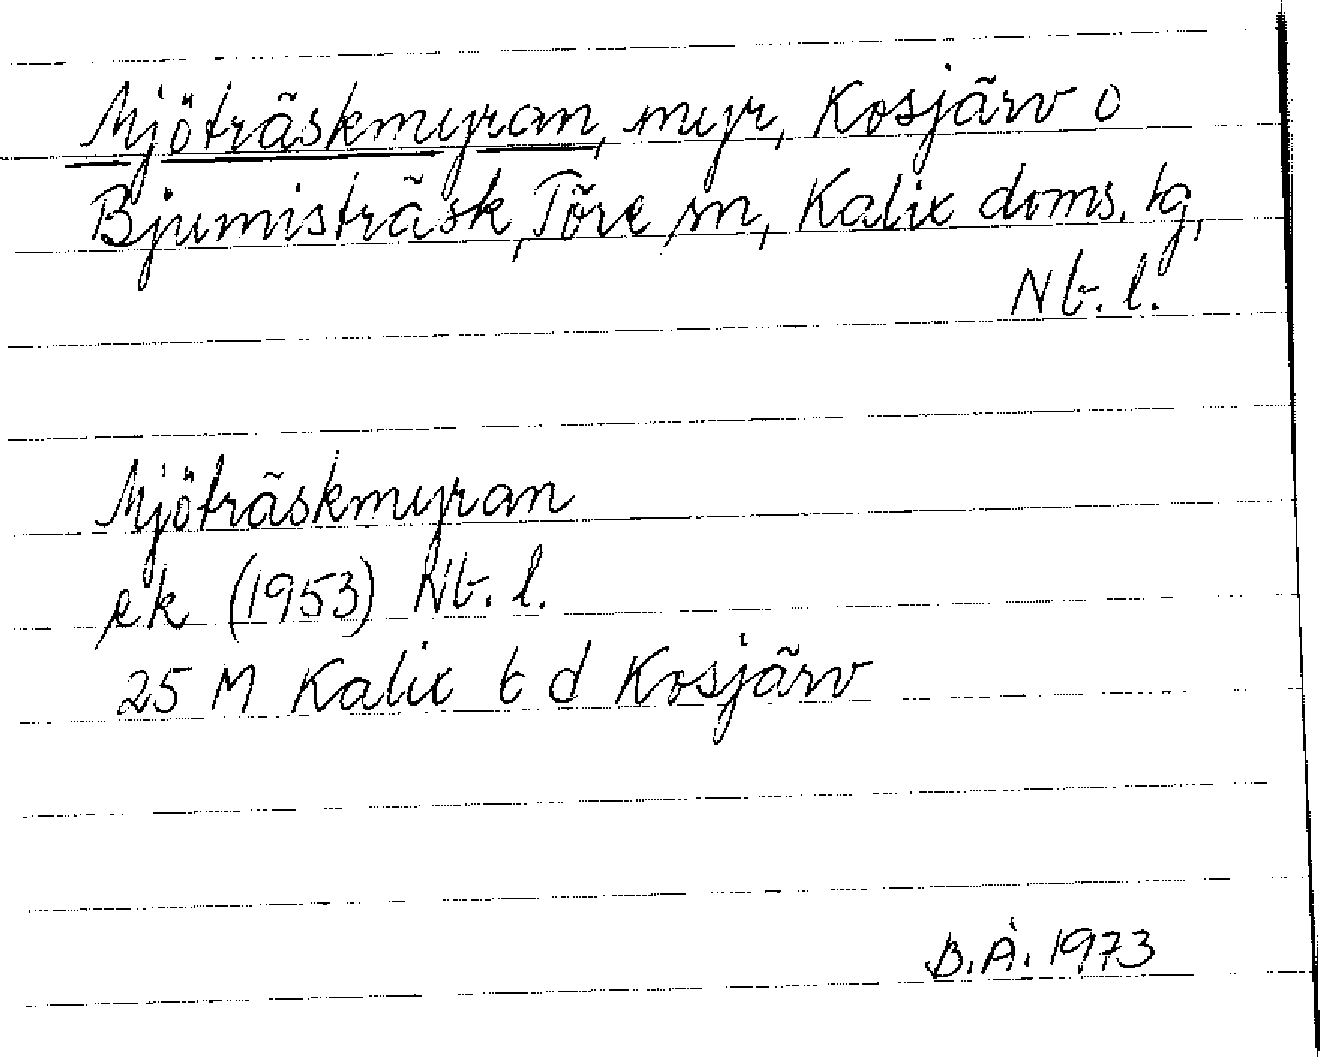 Mjöträskmyran, myr, Kosjärv o
Bjumisträsk, Töre sn, Kalix doms. tg,
Nb. l.
Mjöträskmyran
ek (1953) Nb. l.
25 M Kalix 6 d Kosjärv
B.Å. 1973